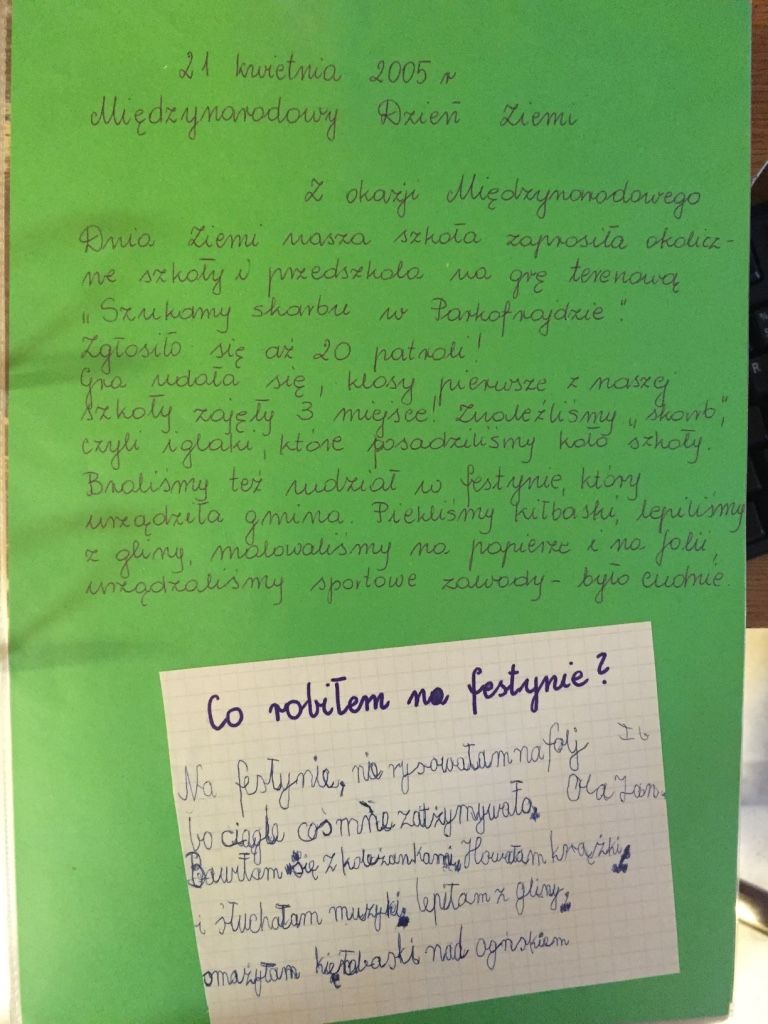 21 kwietnia 2005 r
Międzynarodowy Dzień Ziemi
Z okazji Międzynarodowego
Dnia Ziemi nasza szkoła zaprosiła okolicz-
ne szkoły i przedszkola na grę terenową
„Szukamy skarbu w Parkofrajdzie".
Zgłosiło się aż 20 patroli!
Gra udała się, klasy pierwsze z naszej
szkoły zajęły 3 miejsce! Znaleźliśmy „skarb",
czyli iglaki, które posadziliśmy koło szkoły.
Braliśmy też udział w festynie, który
urządziła gmina. Piekliśmy kiłbaski, lepiliśmy
z gliny, malowaliśmy na papierze i na folii,
urządzaliśmy sportowe zawody - było cudnie.
Co robiłem na festynie?
Na festynie, nie rysowałam na folj
I b
bo ciągle coś mnie zatżymywało.
Ola Jan.
Bawiłam się z koleżankami. krążki,
i słuchałam muzyki, lepiłam z gliny,
smażyłam kiełbaski nad ogńskiem